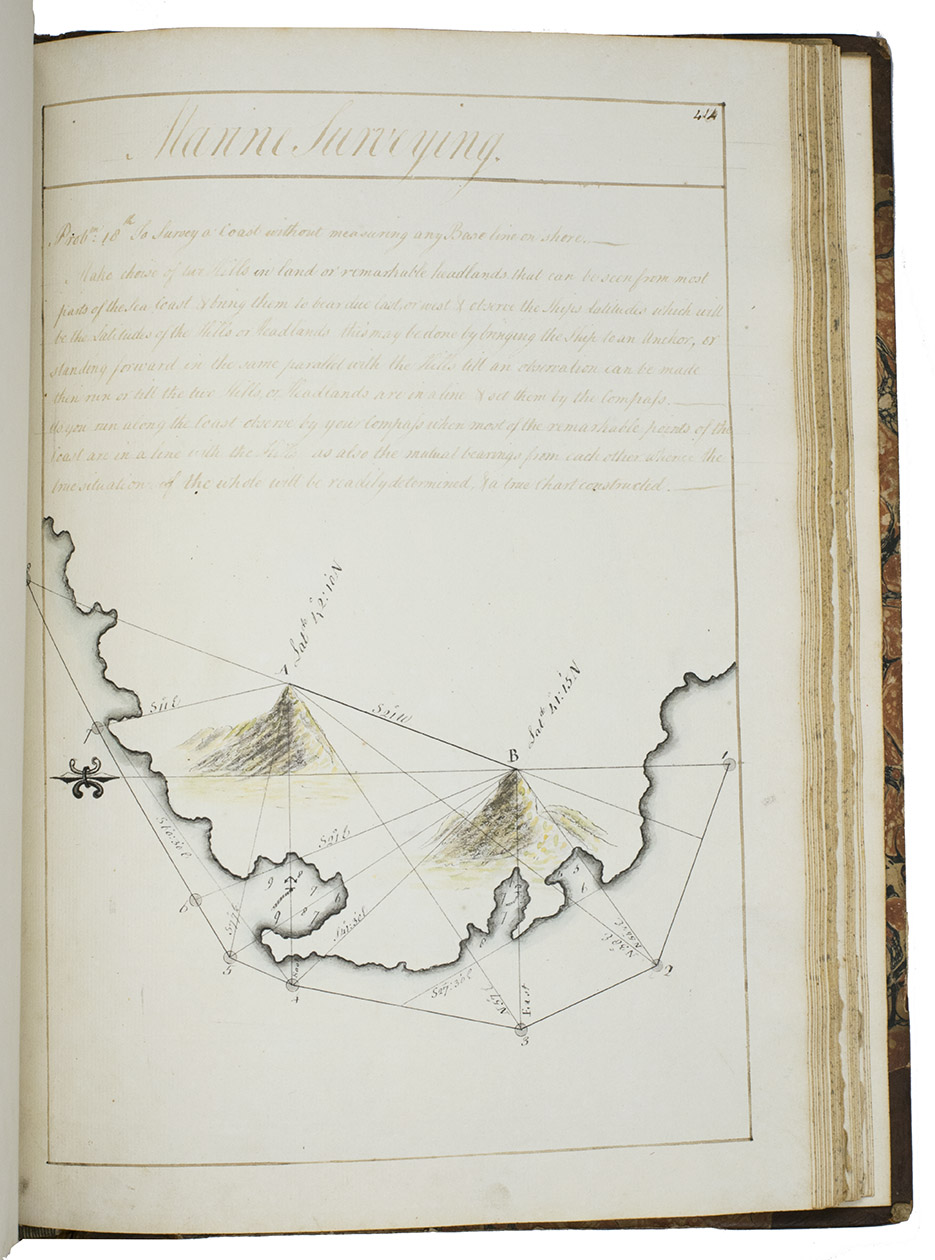 414
Marine Surveying.
Prob.m 18th To Survey a Coast without measuring any Base line on shore.
Make choise of two Hills in land or remarkable headlands that can be seen from most
parts of the Sea Coast & bring them to bear due East or west & observe the Ships Latitudes which will
be the Latitudes of the Hills or Headlands this may be done by bringing the ship to an Anchor, or
standing forward in the same parallel with the Hills till an observation can be made
then run or till the two Hills, or Headlands are in a line & set them by the Compass.
As you run along the Coast observe by your Compass when most of the remarkable points of the
Coast are in a line with the Hills as also the mutual bearings from each other whence the
true situation of the whole will be readily determined, & a true Chart constructed.
Lat.de 42:10 N
A
Lat.de 41:15 N
B
1
7
6
5
4
3
2
East
9
8
7
6
9
8
7
5